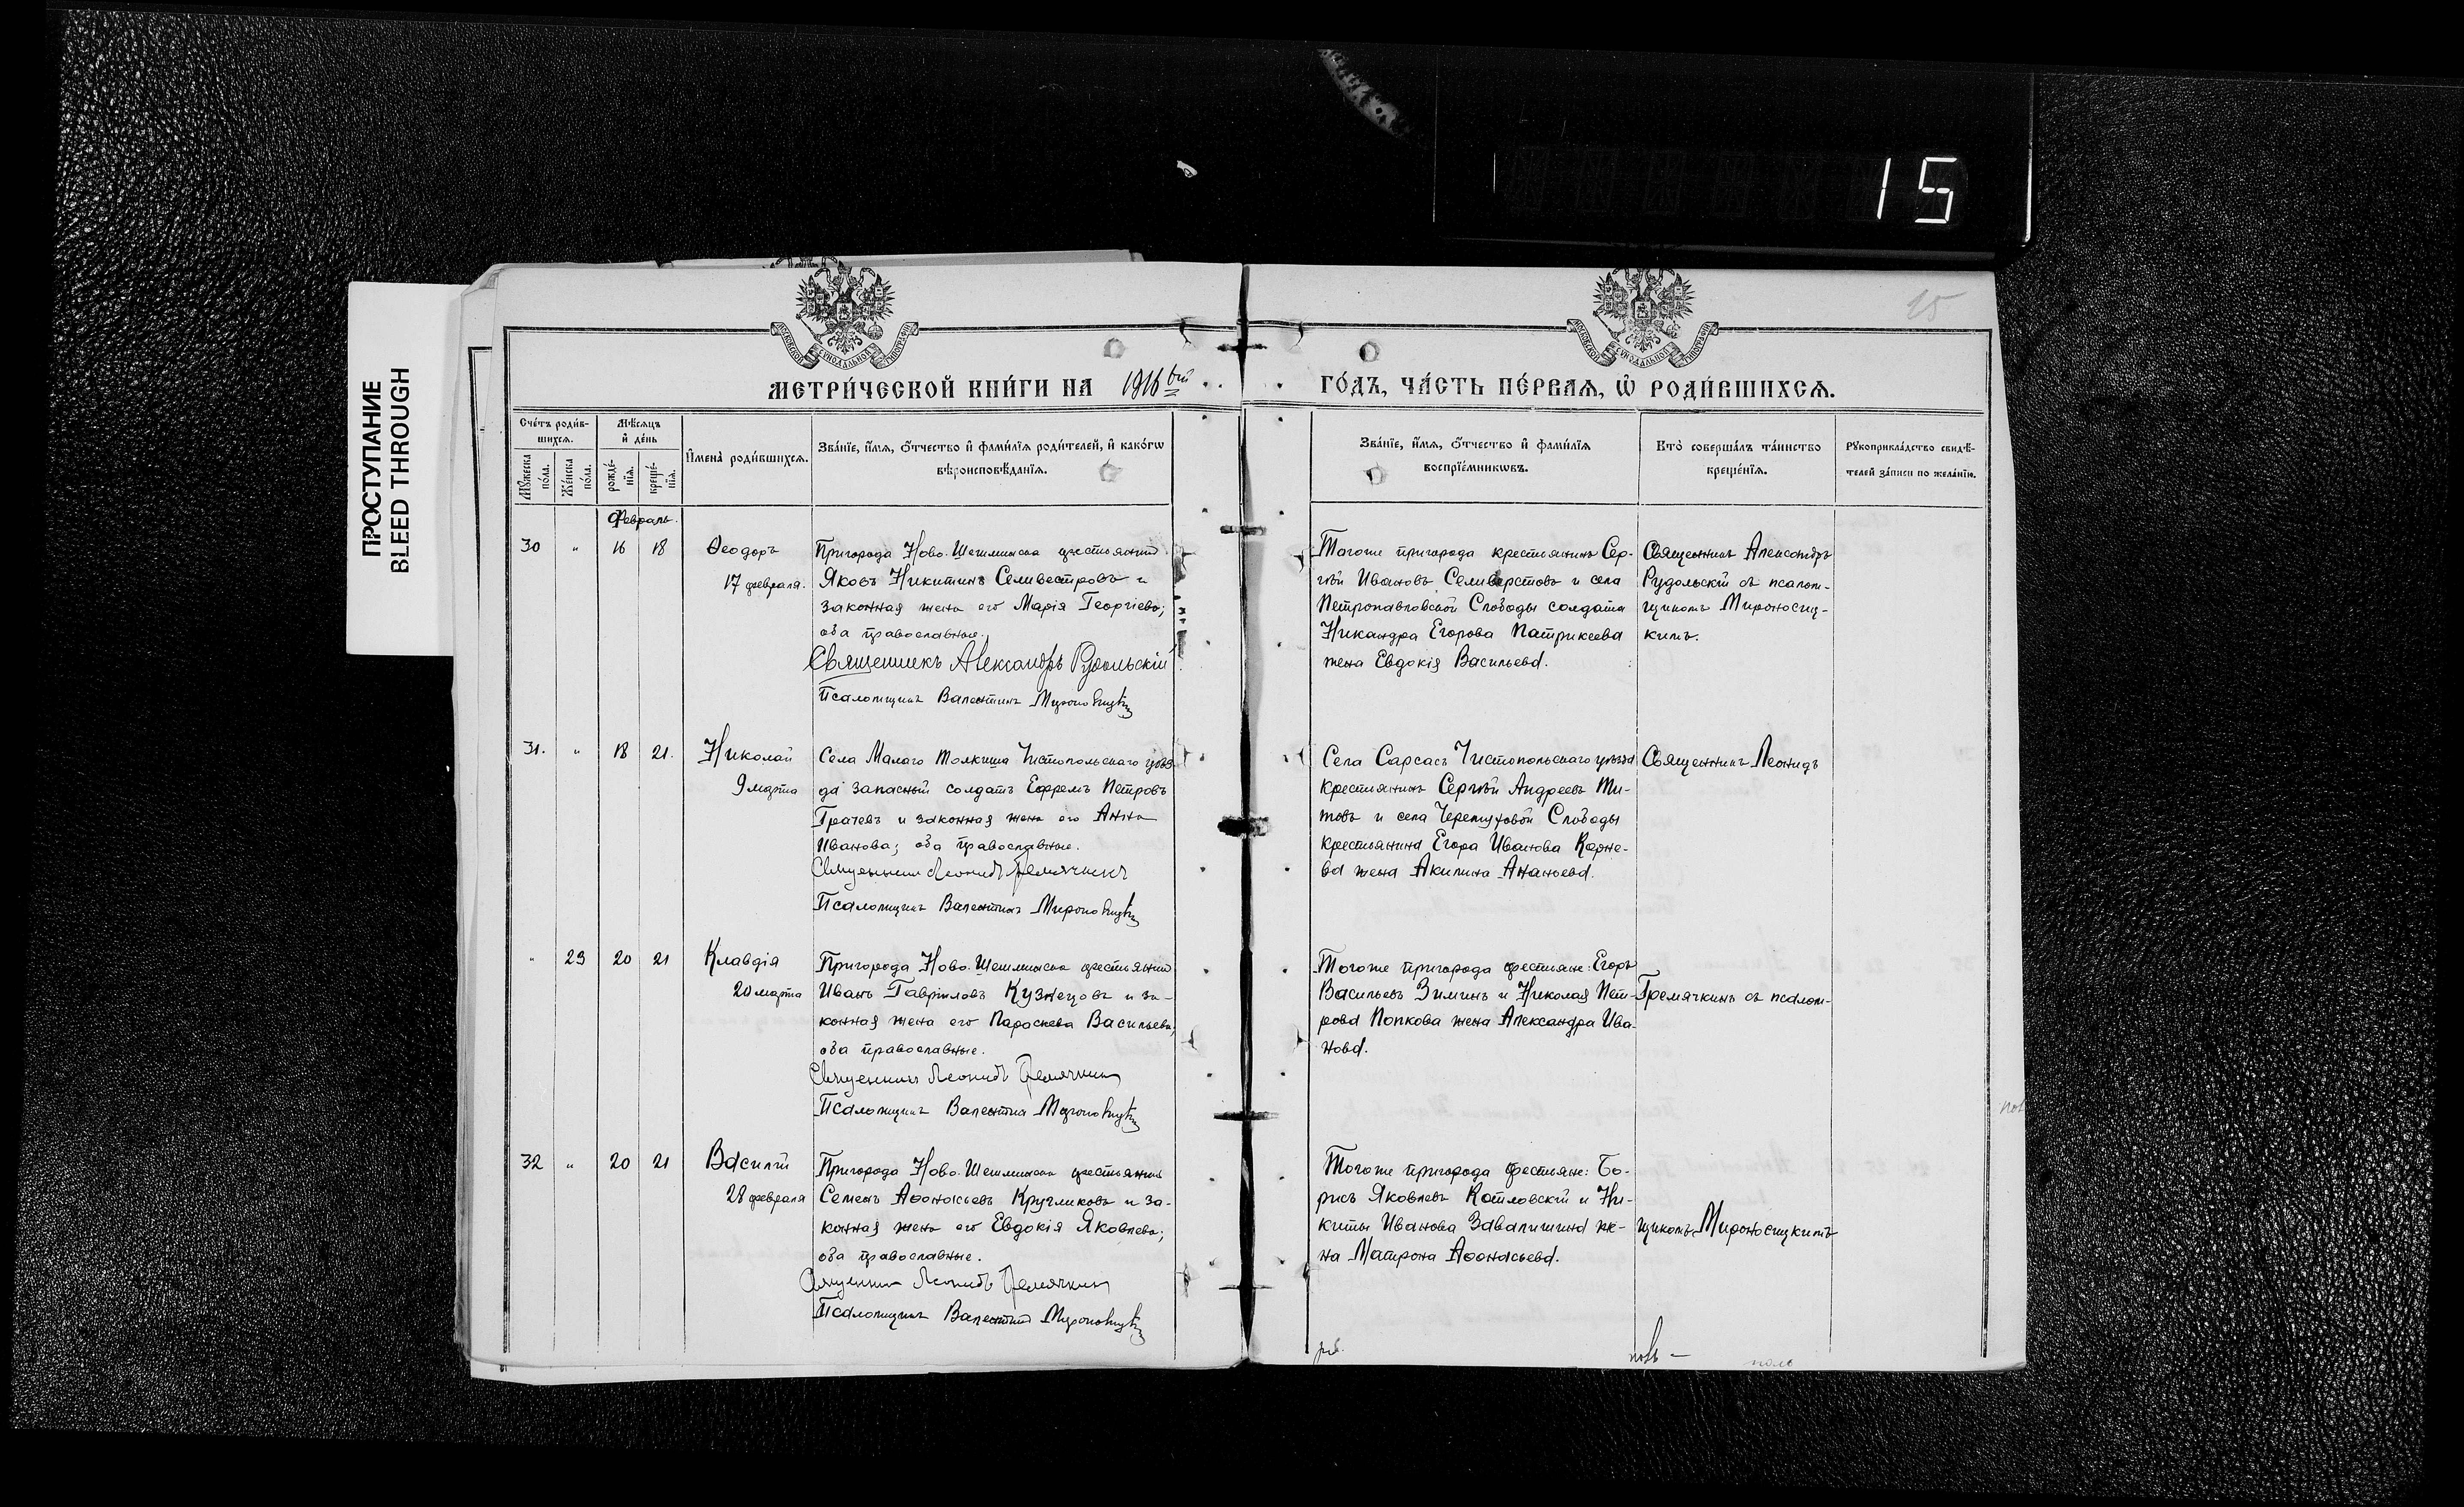 15
ПРОСТУПАНИЕ
BLEED THROUGH
15
МЕТРИ́ЧЕСКОЙ КНИ́ГИ НА 1916 ый
ГО́ДЪ, ЧА́СТЬ ПЕ́РВАЯ, Ѡ РОДИ́ВШИХСЯ.
Сче́тъ роди́в-
шихся.
Мѣ́сяцъ
и де́нь
Мꙋ́жеска по́ла.
Же́нска по́ла.
рожде́-
нїя.
креще́-
нїя.
Имена̀ роди́вшихся.
Зва́нїе, и́мя, о́тчество и фами́лїя роди́телей, и како́гѡ
вѣроисповѣ́данїя.
Зва́нїе, и́мя, о́тчество и фами́лїя
воспрїе́мникѡвъ.
Кто̀ соверша́лъ та́инство
креще́нїя.
Рꙋкоприкла́дство свидѣ́-
телей за́писи по жела́нїю.
Февраль.
30 " 16 18 Ѳеодоръ
17 февраля.
Пригорода Ново-Шешминска крестьянинъ
Яковъ Никитинъ Селивестровъ и
законная жена его Марія Георгіева;
оба православные.
Священникъ Александръ Рудольскій
Псаломщикъ Валентинъ Мироносицкій
Тогоже пригорода крестьянинъ Сер-
гѣй Ивановъ Селиверстовъ и села
Петропавловской Слободы солдата
Никандра Егорова Патрикеева
жена Евдокія Васильева.
Священникъ Александръ
Рудольскій съ псалом-
щикомъ Мироносиц-
кимъ.
31. " 18 21. Николай
9 марта
Села Малаго Толкиша Чистопольскаго уѣз-
да запасный солдатъ Ефремъ Петровъ
Грачевъ и законная жена его Анна
Иванова; оба православные.
Священникъ Леонидъ Гремячкинъ
Псаломщикъ Валентинъ Мироносицкій
Села Сарсасъ Чистопольскаго уѣзда
крестьянинъ Сергѣй Андреевъ Ти-
товъ и села Черемуховой Слободы
крестьянина Егора Иванова Корне-
ва жена Акилина Ананьева.
Священникъ Леонидъ
" 23 20 21 Клавдія
20 марта
Пригорода Ново-Шешминска крестьянинъ
Иванъ Гавріиловъ Кузнецовъ и за-
конная жена его Параскева Васильева;
оба православные.
Священникъ Леонидъ Гремячкинъ
Псаломщикъ Валентинъ Мироносицкій
Тогоже пригорода крестьяне: Егоръ
Васильевъ Зиминъ и Николая Пет-
рова Попкова жена Александра Ива-
нова.
Гремячкинъ съ псалом-
32 " 20 21 Василій
28 февраля
Пригорода Ново-Шешминска крестьянинъ
Семенъ Аѳонасьевъ Кругликовъ и за-
конная жена его Евдокія Яковлева;
оба православные.
Священникъ Леонидъ Гремячкинъ
Псаломщикъ Валентинъ Мироносицкій
Тогоже пригорода крестьяне: Бо-
рисъ Яковлевъ Котловскій и Ни-
киты Иванова Завалишина же-
на Матрона Аѳонасьева.
щикомъ Мироносицкимъ